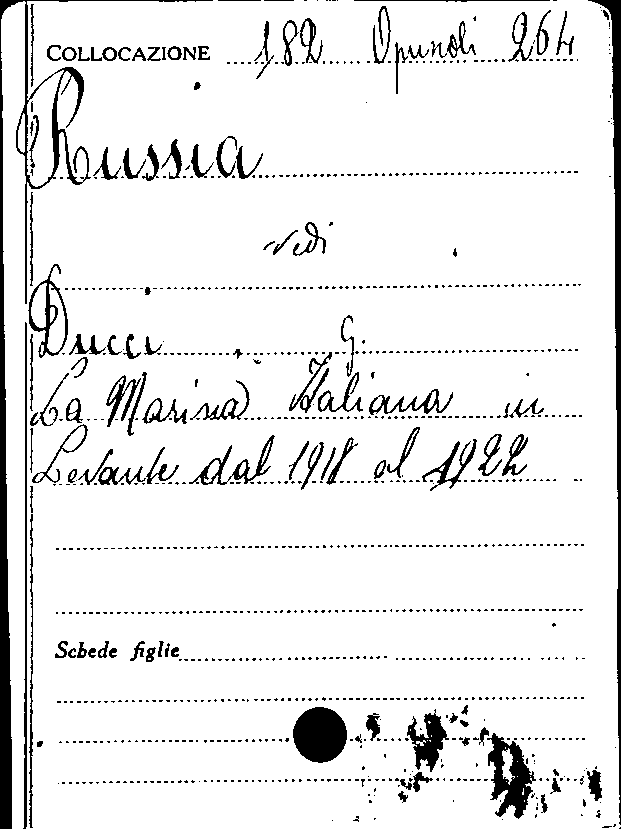 COLLOCAZIONE 182 Opuscoli 264
Russia
vedi
Ducci G.
La Marina Italiana in
Levante dal 1918 al 1922
Schede figlie